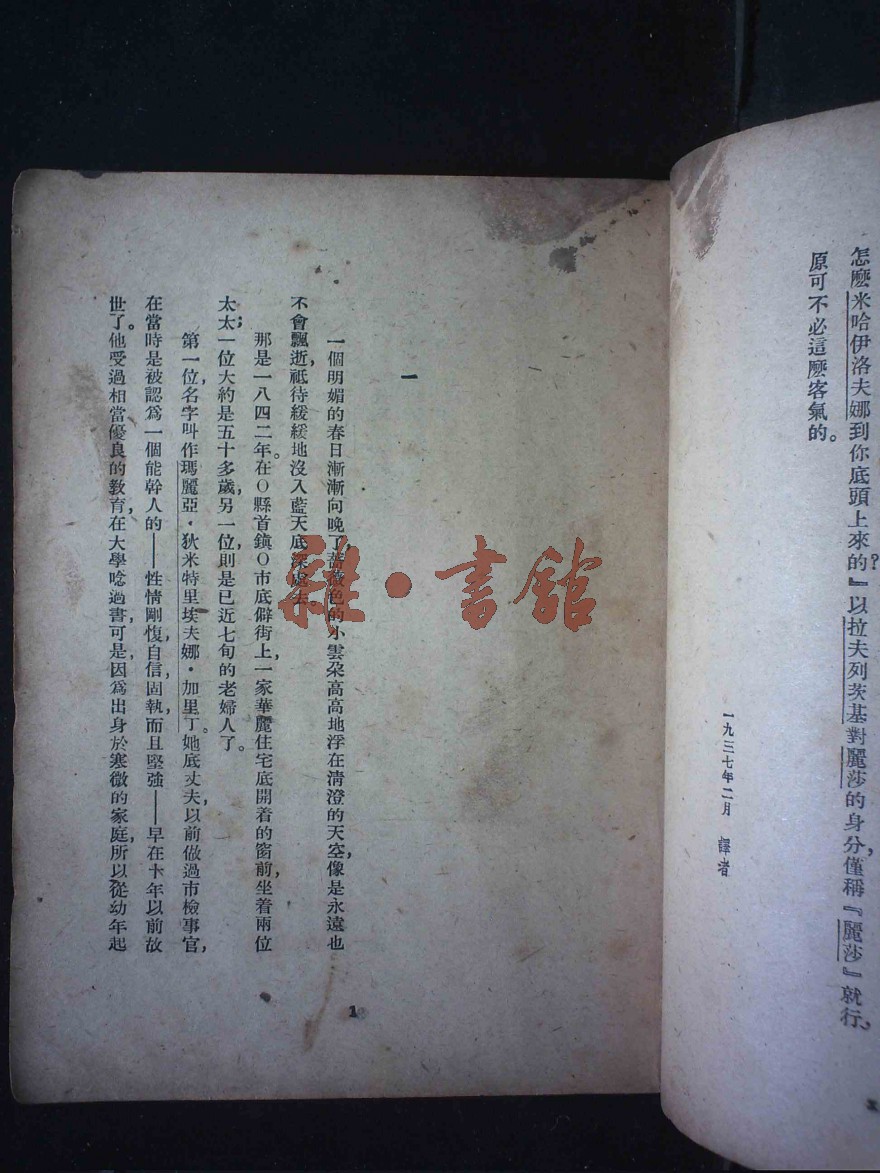 怎麼米哈伊洛夫娜到你底頭上來的?』以拉夫列茨基對麗莎的身分,僅稱『麗莎』就行,
原可不必這麼客氣的。
一九三七年二月 譯者
一
一個明媚的春日漸漸向晚了,薔薇色的小雲朵高高地浮在清澄的天空,像是永遠也
不會飄逝,祇待緩緩地沒入藍天底深處去。
那是一八四二年。在O縣首鎮O市底僻街上,一家華麗住宅底開着的窗前,坐着兩位
太太;一位大約是五十多歲,另一位則是已近七旬的老婦人了。
第一位,名字叫作瑪麗亞·狄米特里埃夫娜·加里丁。她底丈夫,以前做過市檢事官,
在當時是被認爲一個能幹人的——性情剛愎,自信,固執,而且堅強——早在十年以前故
世了。他受過相當優良的敎育,在大學唸過書,可是,因爲出身於寒微的家庭,所以從幼年起
1
雜·書館